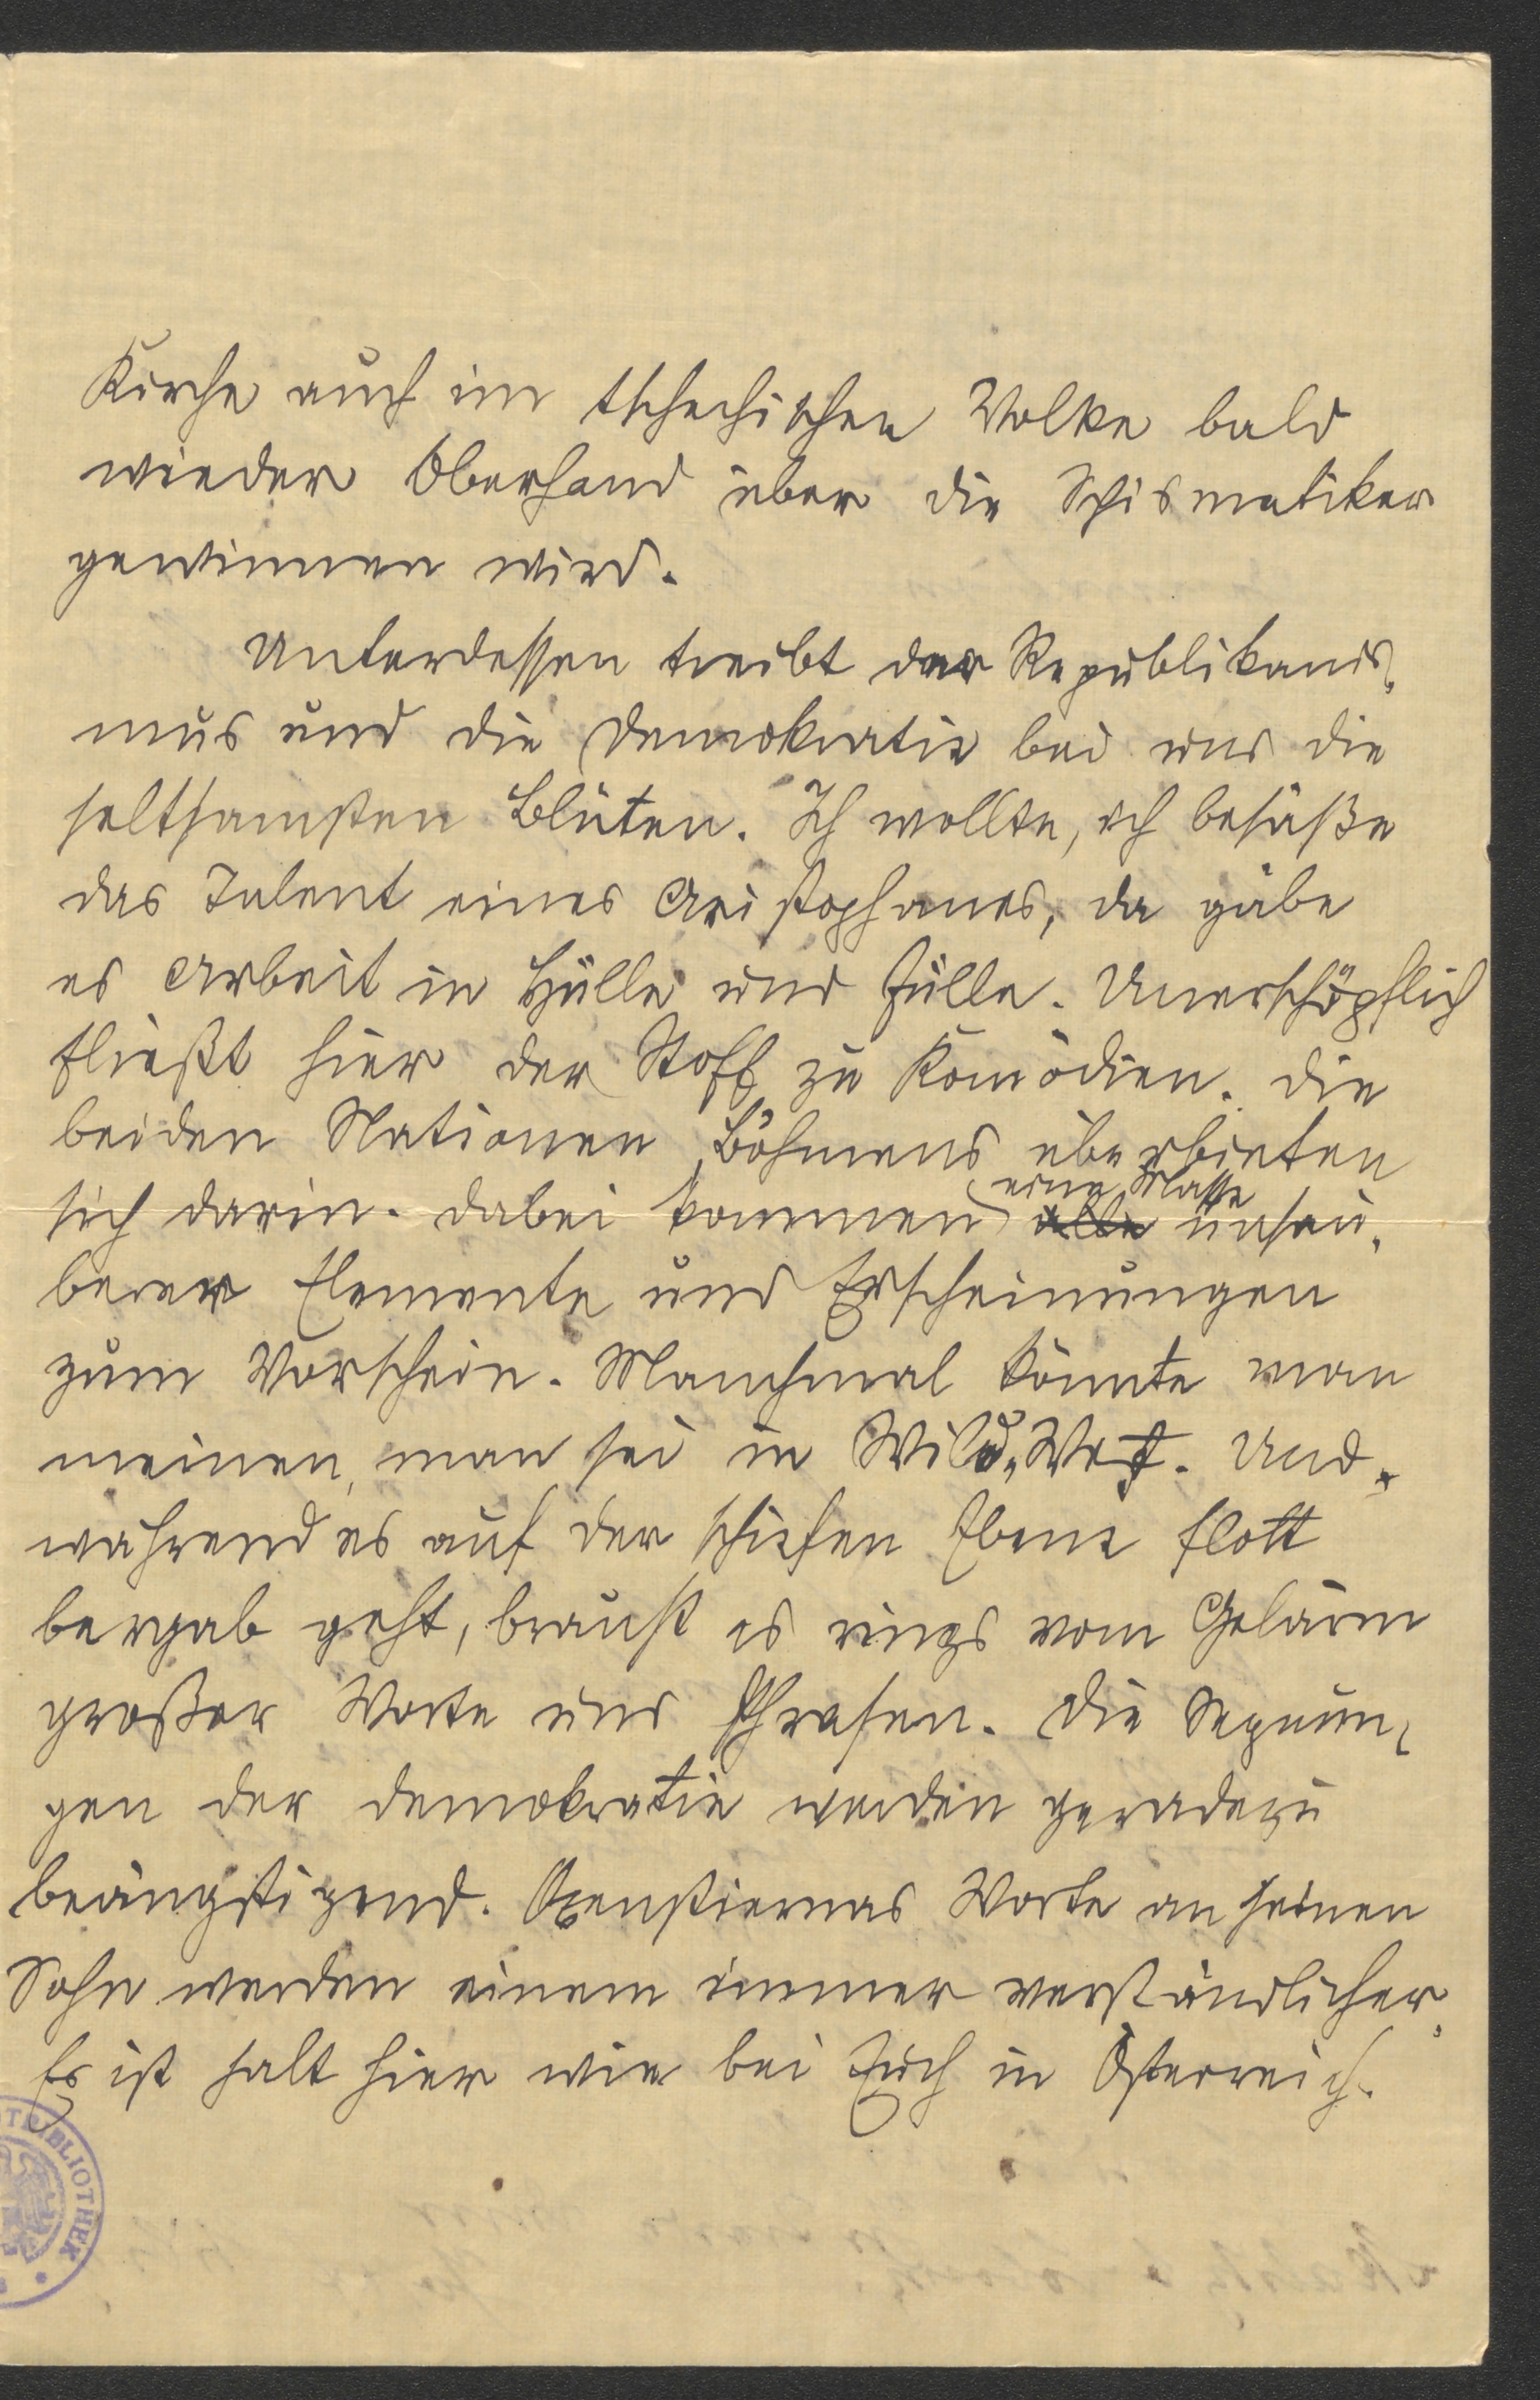 Kirche auch im tschechischen Volke bald
wieder Oberhand über die Schismatiker
gewinnen wird.
Unterdessen treibt der Republikanis-
mus und die Demokratie bei uns die
seltsamsten Blüten. Ich wollte, ich besäße
das Talent eines Aristophanes, da gäbe
es Arbeit in Hülle und Fülle. Unerschöpflich
fließt hier der Stoff zu Komödien. Die
beiden Nationen Böhmens überbieten
sich darin. Dabei kommen eine Masse unsau-
berer Elemente und Erscheinungen
zum Vorschein. Manchmal könnte man
meinen, man sei in Wild-West. Und
während es auf der schiefen Ebene flott
bergab geht, braust es rings vom Gelärm
großer Worte und Phrasen. Die Segnun-
gen der Demokratie werden geradezu
beängstigend. Oxenstiernas Worte an seinen
Sohn werden einem immer verständlicher.
Es ist halt hier wie bei Euch in Österreich.
TBIBLIOTHEK